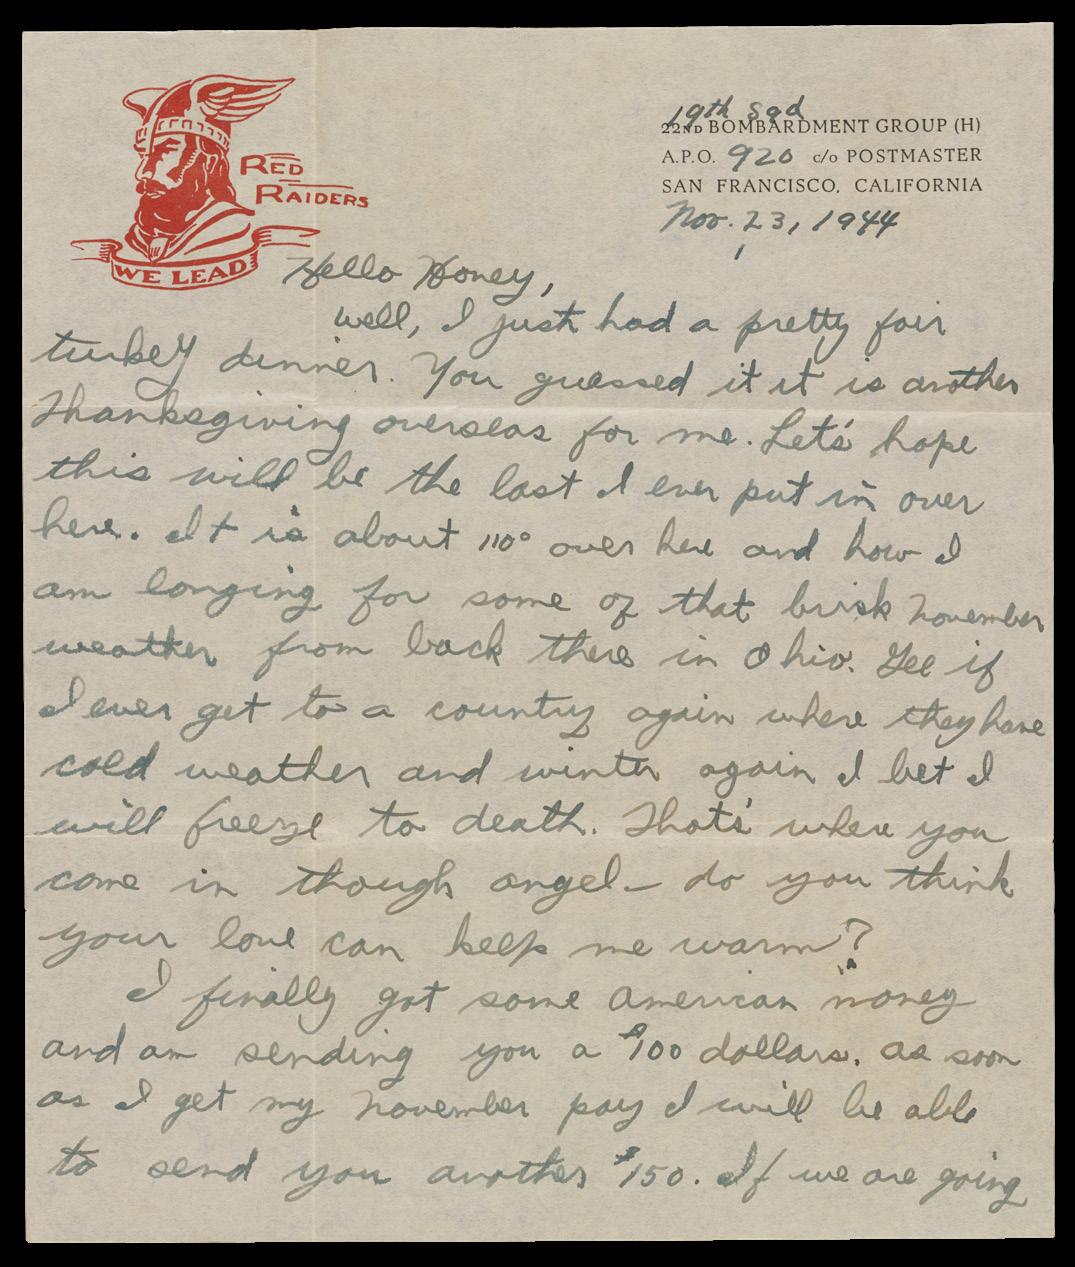 RED
RAIDERS
WE LEAD
19th Sqd
22ND BOMBARDMENT GROUP (H)
A.P.O. 920 c/o POSTMASTER
SAN FRANCISCO, CALIFORNIA
Nov. 23, 1944
Hello Honey,
Well, I just had a pretty fair
turkey dinner. You guessed it it is another
Thanksgiving overseas for me. Let's hope
this will be the last I ever put in over
here. It is about 110° over here and how I
am longing for some of that brisk November
weather from back there in Ohio. Gee if
I ever get to a country again where they have
cold weather and winter again I bet I
will freeze to death. That's where you
come in though angel - do you think
your love can keep me warm?
I finally got some American money
and am sending you a $100 dollars. As soon
as I get my November pay I will be able
to send you another $150. If we are going